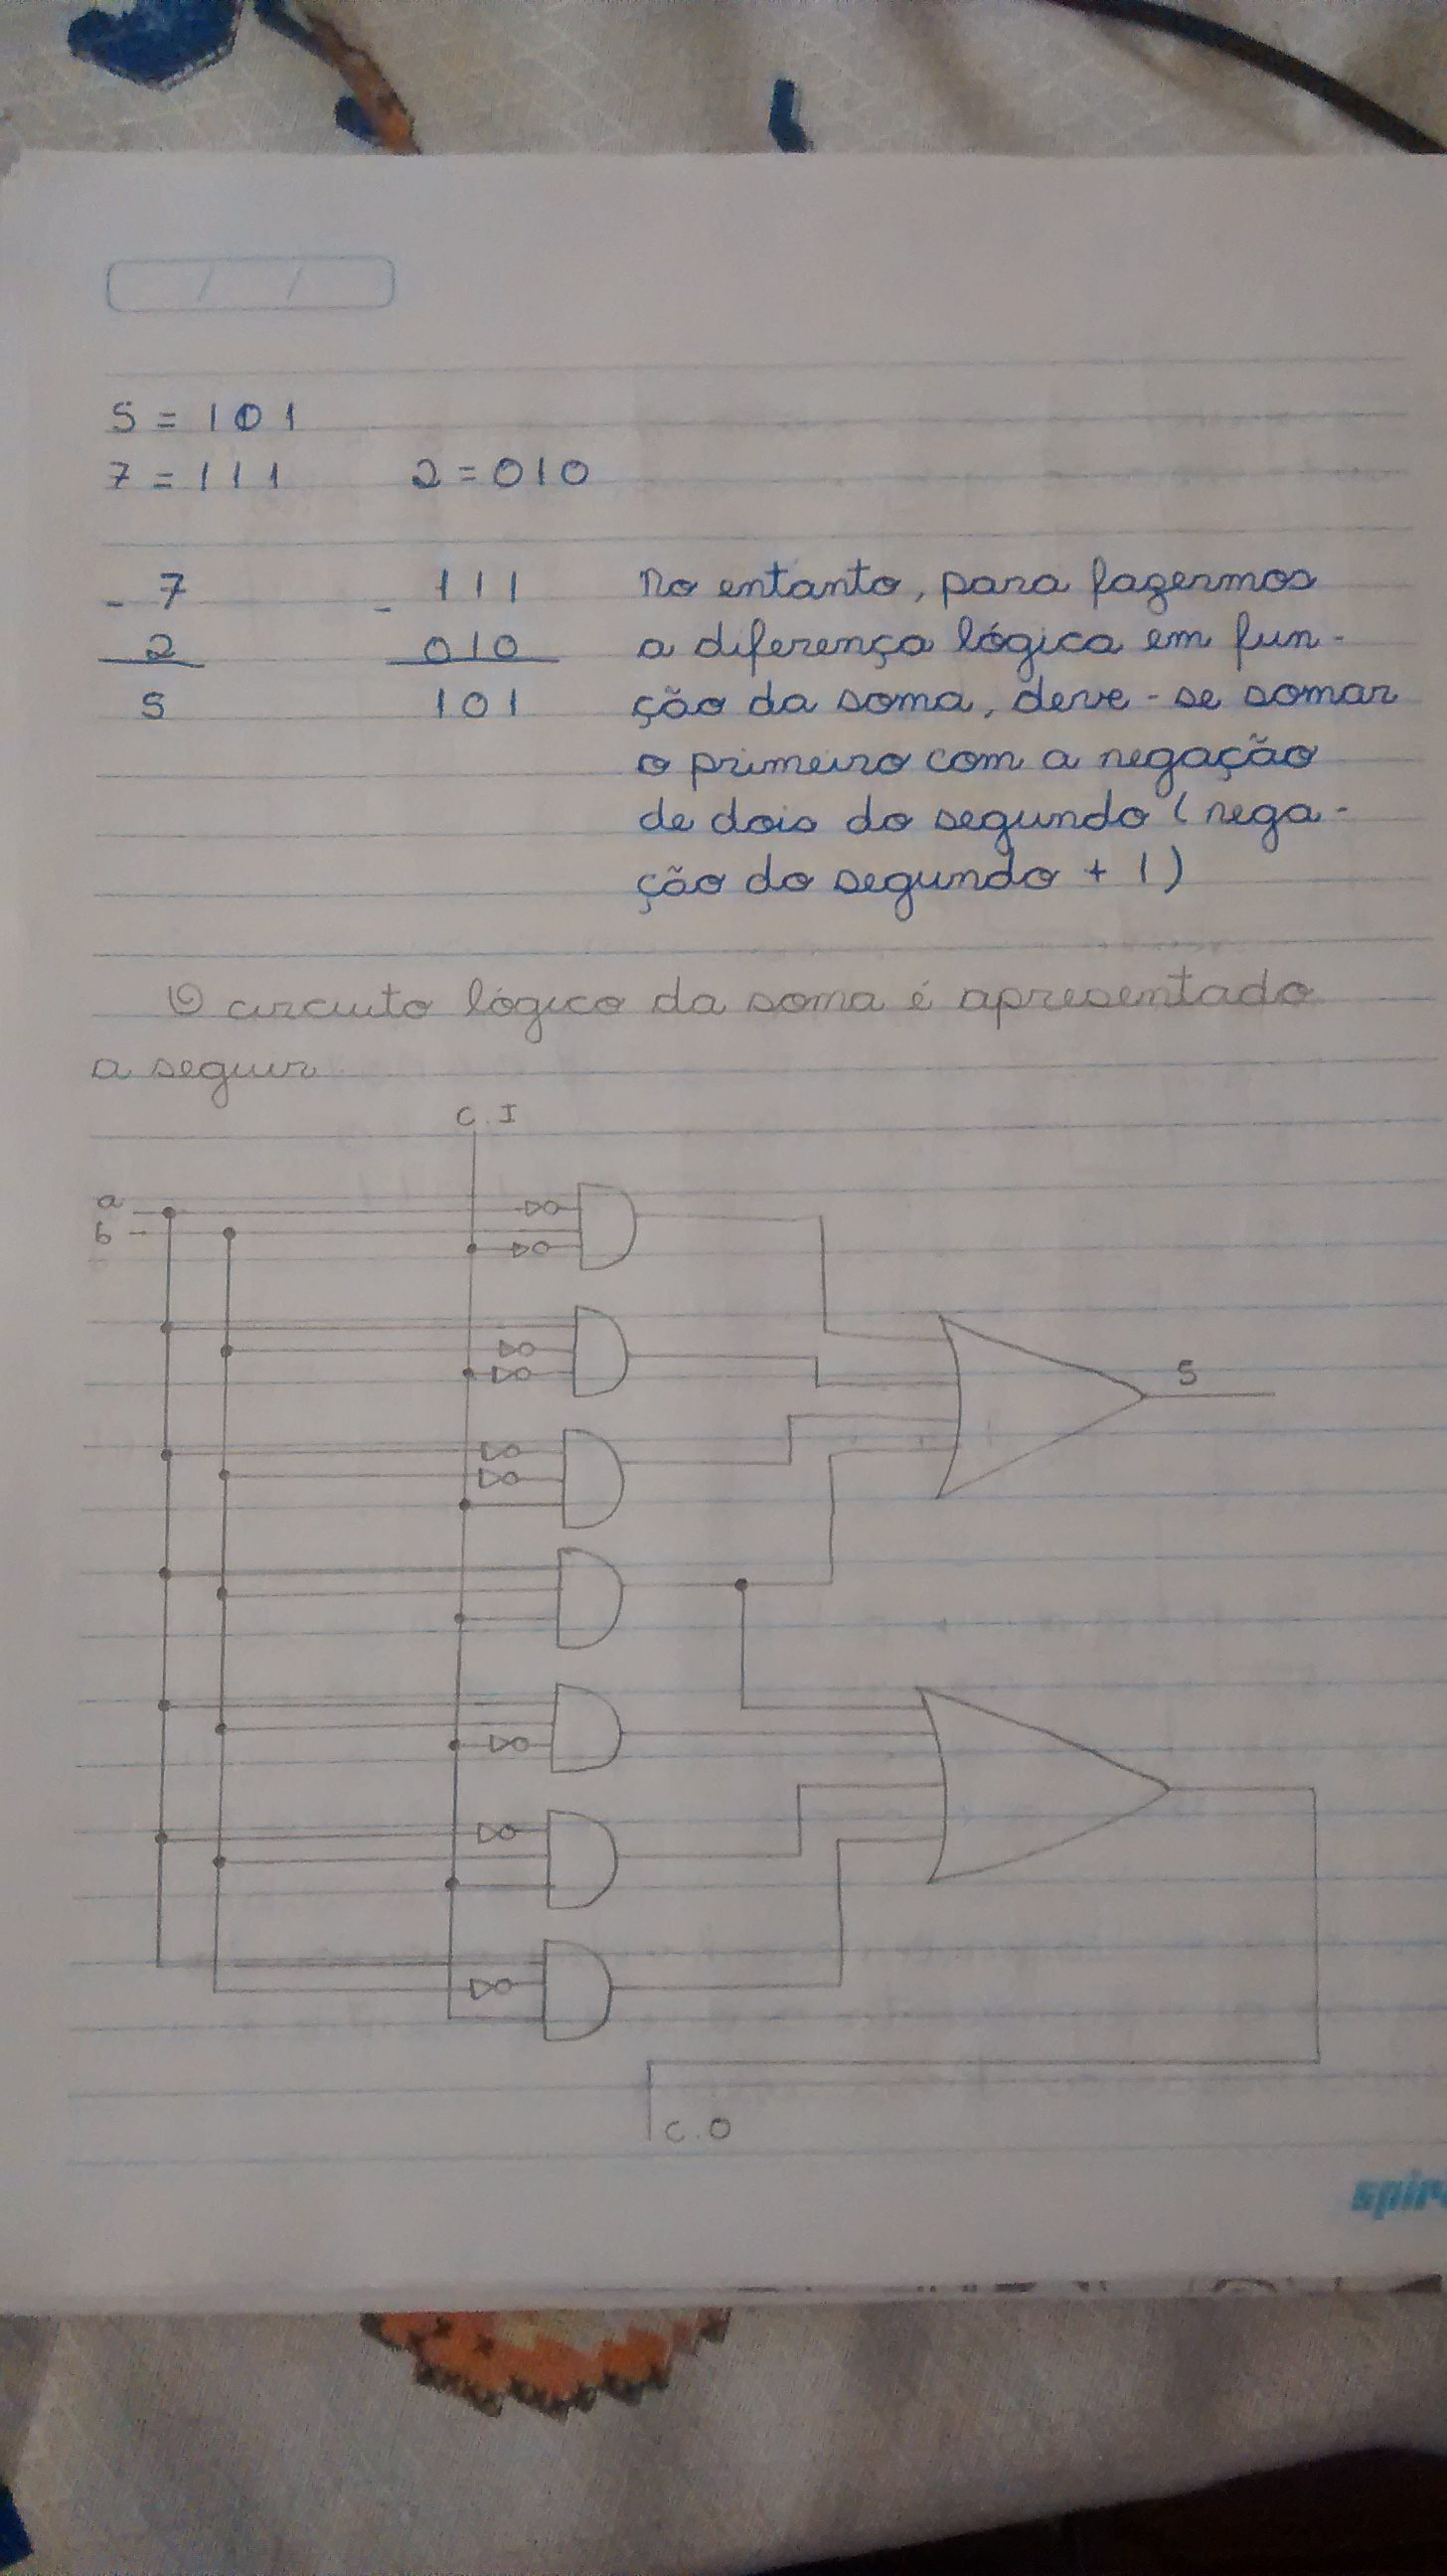 / /
5 = 101
7 = 111 2 = 010
- 7 - 111 No entanto, para fazermos
2 010 a diferença lógica em fun-
5 101 ção da soma, deve-se somar
o primeiro com a negação
de dois do segundo (nega-
ção do segundo + 1)
O circuito lógico da soma é apresentado
a seguir
C.I
a
b
S
C.O